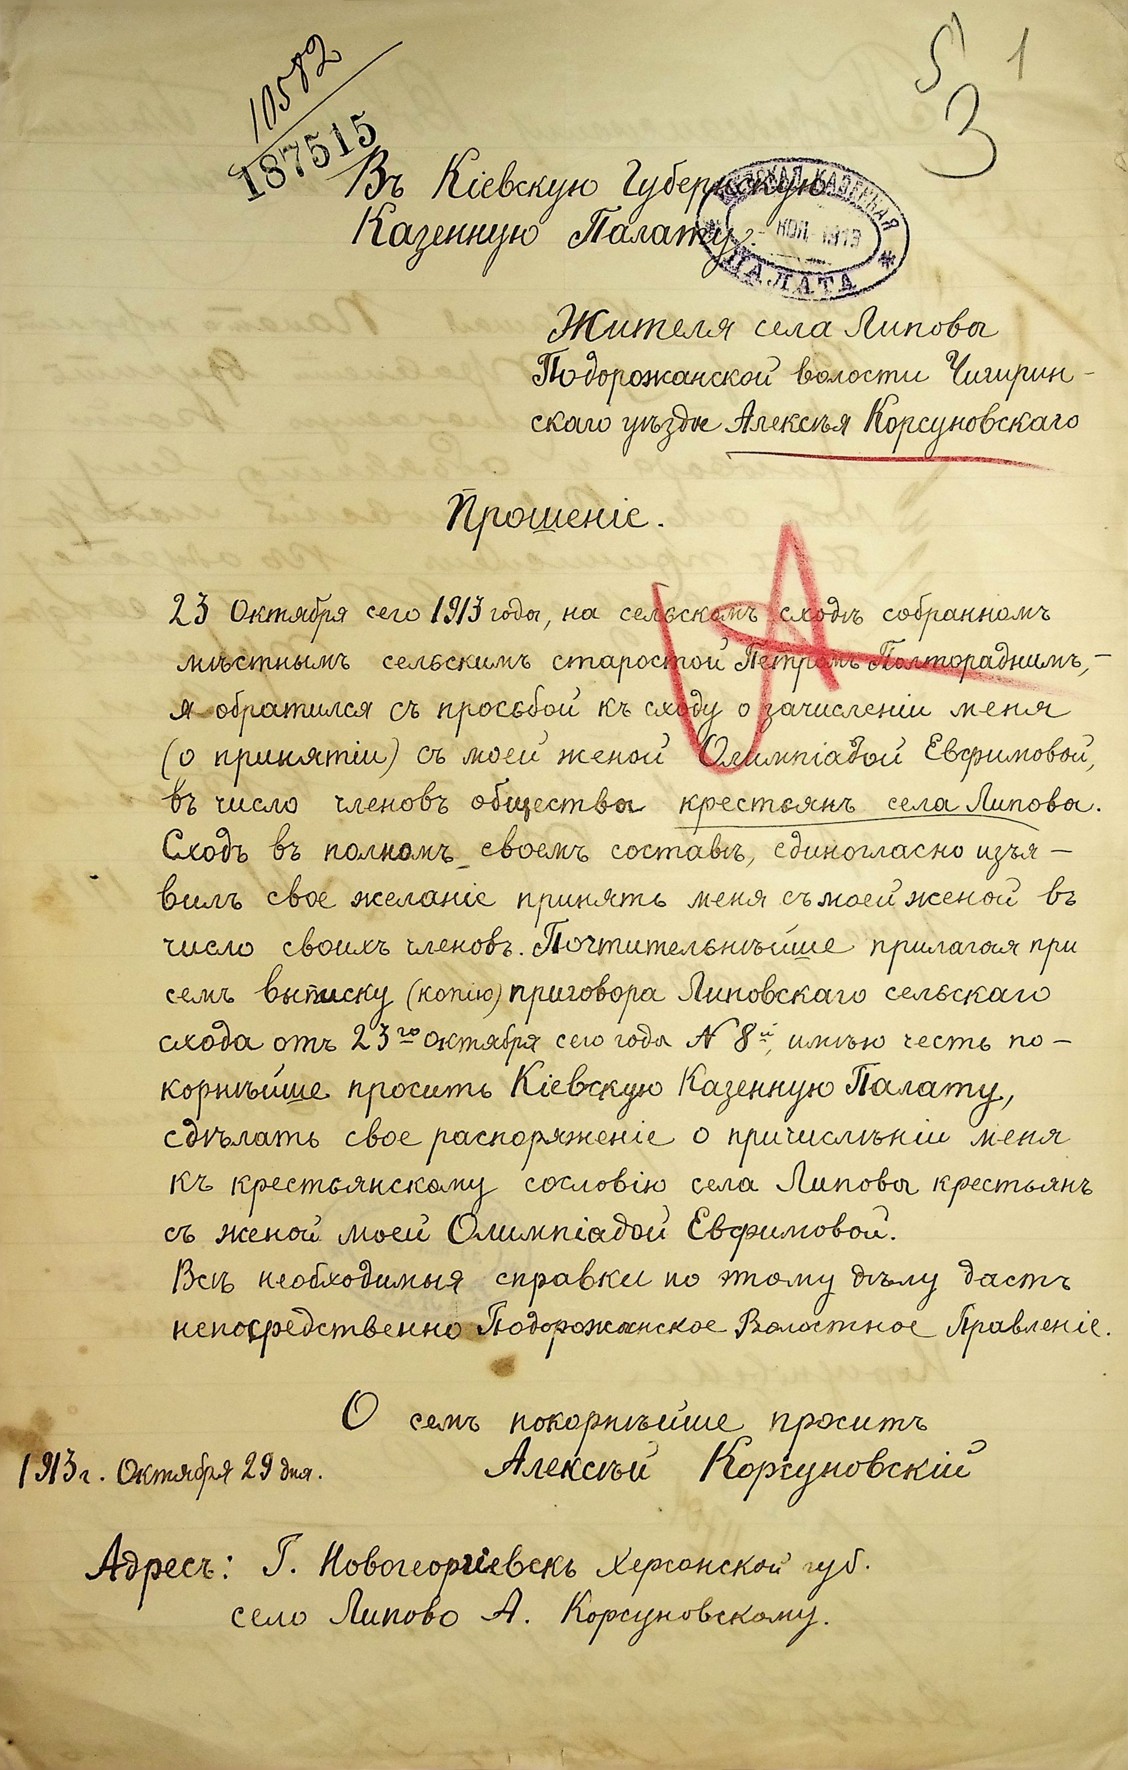 10582
187515
5 1
3
Въ Кіевскую Губернскую
Казенную Палату.
КІЕВСКАЯ КАЗЕННАЯ
ПАЛАТА
НОЯ 1913
Жителя села Липова
Подорожанской волости Чигирин-
скаго уѣзда Алексѣя Корсуновскаго
Прошеніе.
23 Октября сего 1913 года, на сельскомъ сходѣ собранномъ
мѣстнымъ сельскимъ старостой Петромъ Полтораднимъ,-
я обратился съ просьбой къ сходу о зачисленіи меня
(о принятіи) съ моей женой Олимпіадой Евфимовой,
въ число членовъ общества крестьянъ села Липова.
Сходъ въ полномъ своемъ составѣ, единогласно изъя-
вилъ свое желаніе принять меня съ моей женой въ
число своихъ членовъ. Почтительнѣйше прилагая при
семъ выписку (копію) приговора Липовскаго сельскаго
схода отъ 23го октября сего года N 8й, имѣю честь по-
корнѣйше просить Кіевскую Казенную Палату,
сдѣлать свое распоряженіе о причислѣніи меня
къ крестьянскому сословію села Липова крестьянъ
съ женой моей Олимпіадой Евфимовой.
Всѣ необходимыя справки по этому дѣлу дастъ
непосредственно Подорожанское Волостное Правленіе.
О семъ покорнѣйше проситъ
1913 г. Октября 29 дня. Алексѣй Корсуновскій
Адресъ: Г. Новогеоргіевскъ Херсонской губ.
село Липово А. Корсуновскому.